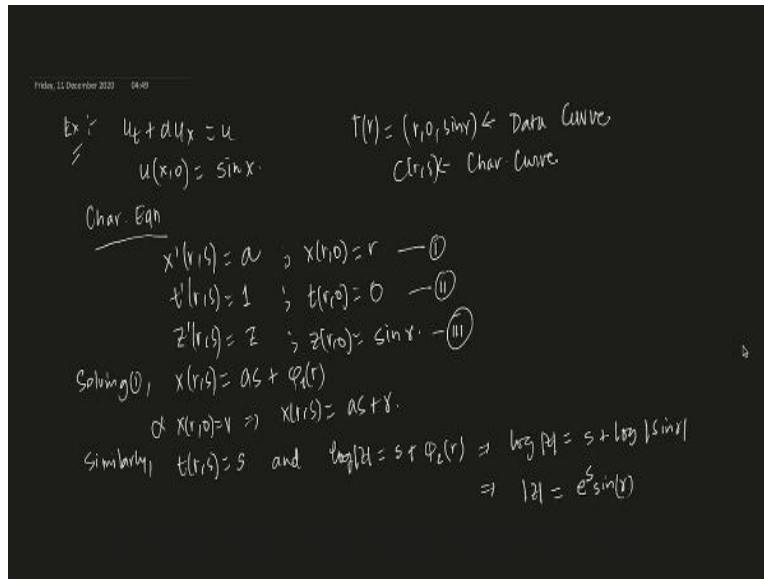 Friday, 11 December 2020 04:49
Ex:- u_t + a u_x = u Γ(r) = (r, 0, sin r) ← Data Curve
u(x,0) = sin x. C(r,s) ← Char. Curve
Char. Eqn
x'(r,s) = a ; x(r,0) = r — (I)
t'(r,s) = 1 ; t(r,0) = 0 — (II)
z'(r,s) = z ; z(r,0) = sin r. — (III)
Solving (I), x(r,s) = as + φ₁(r)
& x(r,0) = r ⇒ x(r,s) = as + r.
Similarly, t(r,s) = s and log|z| = s + φ₂(r) ⇒ log|z| = s + log|sin r|
⇒ |z| = e^s sin(r)